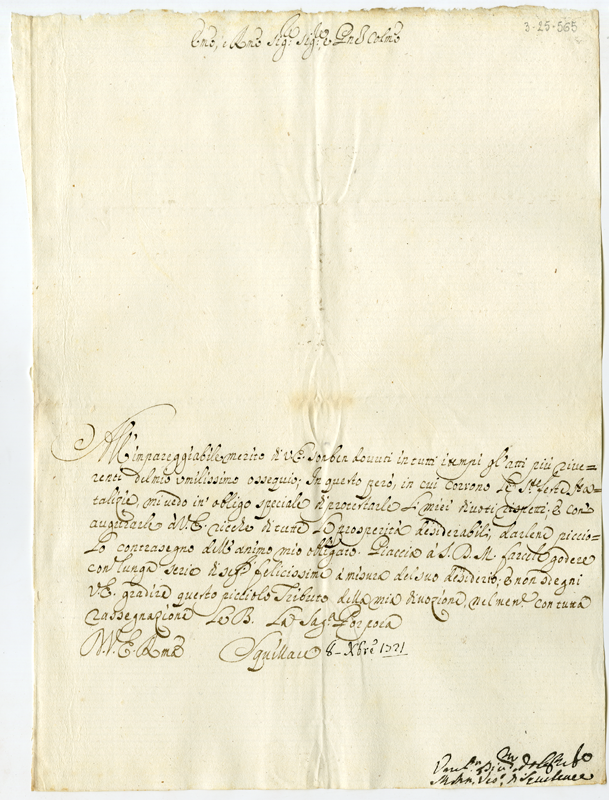 3-25-565
Emo, e Rmo Sigr. Sigr. e Pne Colmo
All'impareggiabile merito di V.E. son ben dovuti in tutti i tempi gl'atti più rive=
renti del mio umilissimo ossequio; In questo però, in cui corrono le Ste feste Na=
talizie, mi vedo in obligo speciale di protestarle li miei divoti rispetti, e con
augurarle a V.E. ricche di tutte le prosperità desiderabili, darlene piccio=
lo contrasegno dell'animo mio obligato. Piaccia a S.D.M. farcele godere
con lunga serie di felicissime a misura del suo desiderio; e non sdegni
V.E. gradire questo picciolo Tributo della mia divozione, nel mentre con tutta
rassegnazione le B. la Sagra Porpora
D.V.E. Rma Squillace 8 Xbre 1721